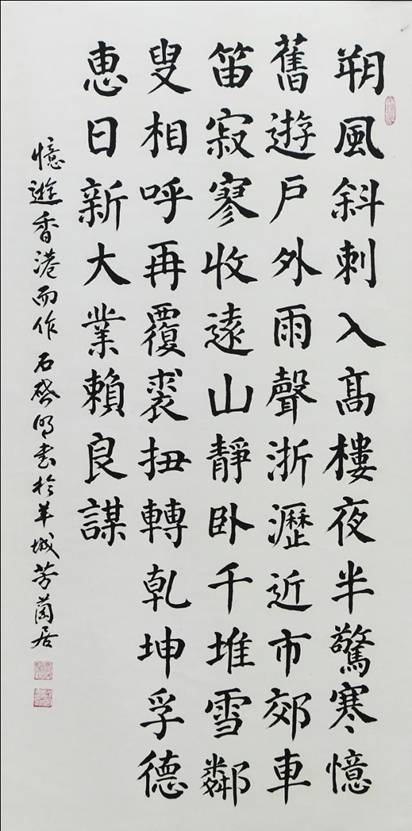 朔風斜刺入髙樓夜半驚寒憶
舊遊戶外雨聲淅瀝近市郊車
笛寂寥收遠山靜卧千堆雪鄰
叟相呼再覆裘扭轉乾坤孚德
惠日新大業賴良謀
憶遊香港而作 石啓明書於羊城芳蘭居